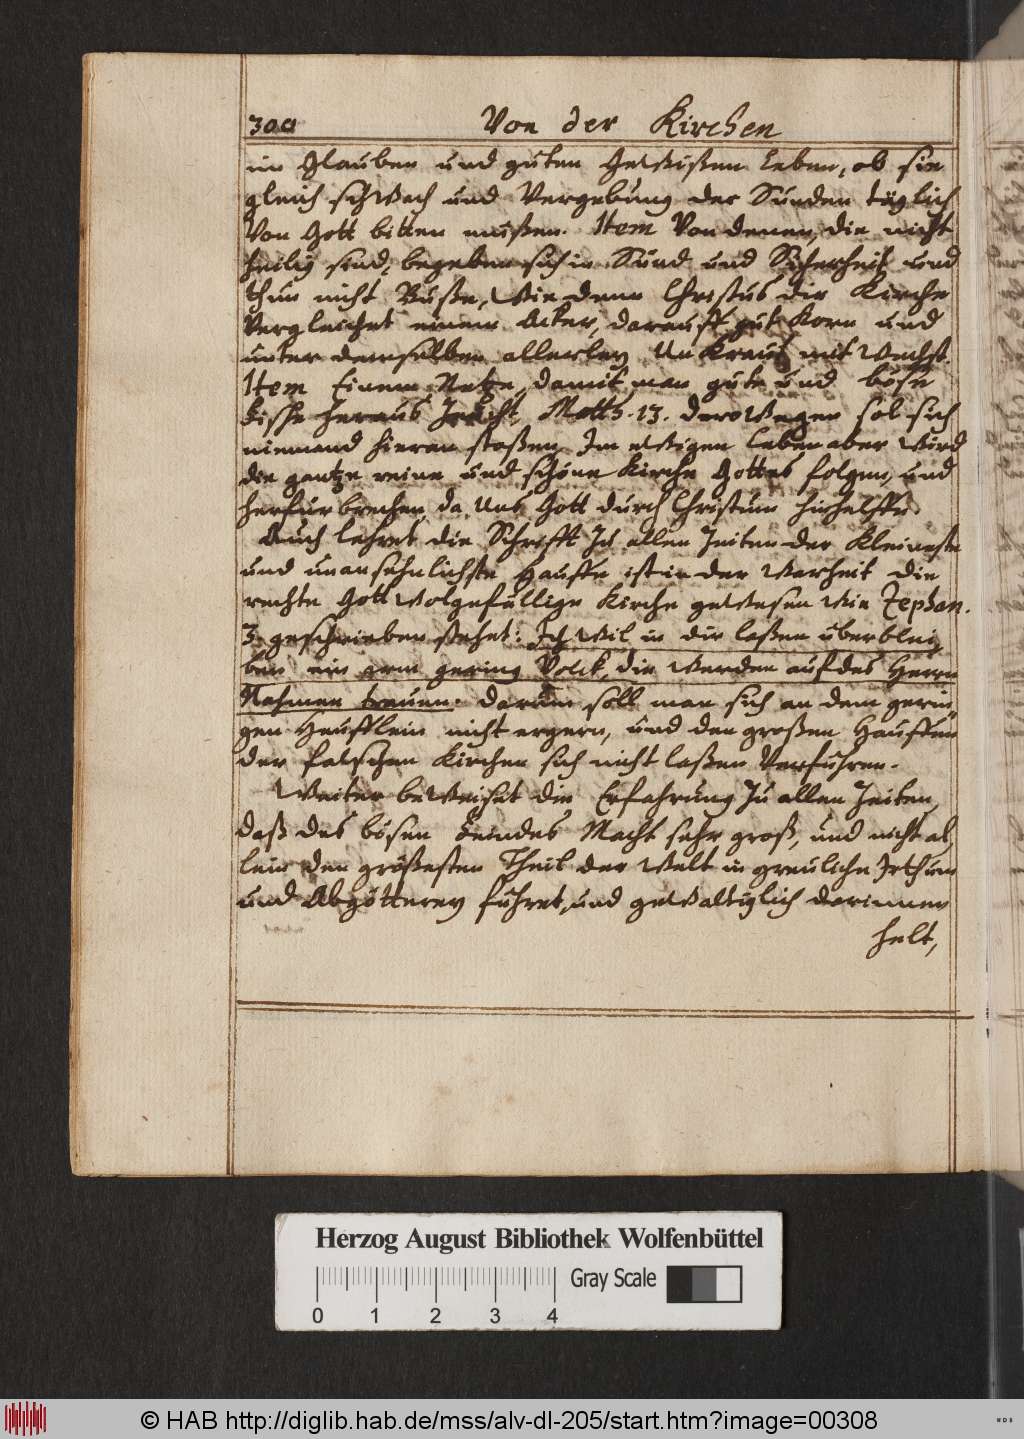 300 Von der Kirchen
im Glauben und guten Gewißen Leben, ob sie
gleich schwach und Vergebung der Sünden täglich
Von Gott bitten mußen. Item Von denen, die nicht
heilig sind, begeben sich in Sünd und Sicherheit und
thun nicht Buße, Wie denn Christus die Kirche
Vergleichet einem Acker, darauff gut Korn und
unter demselben allerley Unkraut mit Wechst.
Item Einem Netze, damit man gute und böse
Fische heraus Zeicht, Matth. 13. derowegen sol sich
niemand hieran stoßen. Im ewigen Leben aber Wird
die gantze reine und schöne Kirche Gottes folgen, und
herfur brechen, da Uns Gott durch Christum hinhelffe.
Auch lehret die Schrifft Zu allen Zeiten der Kleineste
und unansehnlichste Hauffe ist in der Warheit die
rechte Gott Wolgefällige Kirche geWesen Wie Zephan.
3. geschrieben stehet: Ich Wil in dir laßen überblei,
ben ein arm gering Volck, die Werden auf des Herrn
Nahmen trauen. Darum soll man sich an dem gerin,
gen Heufflein nicht ergern, und den großen Hauffen
der falschen Kirchen sich nicht laßen Verführen.
Weiter beWeiset die Erfahrung Zu allen Zeiten,
daß des bösen Feindes Macht sehr groß, und nicht al,
lein den größesten Theil der Welt in greuliche Irthum
und Abgötterey führet, und geWaltiglich darinnen
helt,
Herzog August Bibliothek Wolfenbüttel
0 1 2 3 4 Gray Scale
© HAB http://diglib.hab.de/mss/alv-dl-205/start.htm?image=00308